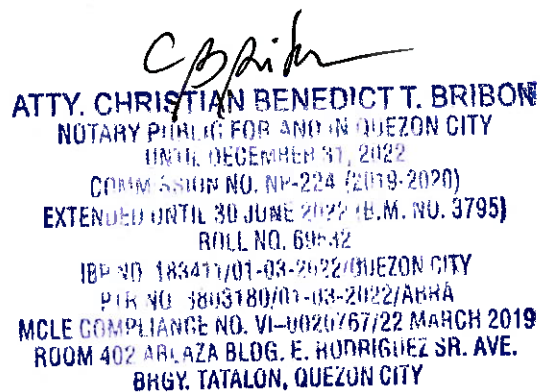 ATTY. CHRISTIAN BENEDICT T. BRIBON
NOTARY PUBLIC FOR AND IN QUEZON CITY
UNTIL DECEMBER 31, 2022
COMMISSION NO. NP-224 (2019-2020)
EXTENDED UNTIL 30 JUNE 2022 (B.M. NO. 3795)
ROLL NO.
IBP NO. 183411/01-03-2022/QUEZON CITY
PTR NO. 3803180/01-03-2022/ABRA
MCLE COMPLIANCE NO. VI-0020767/22 MARCH 2019
ROOM 402 ARLAZA BLDG. E. RODRIGUEZ SR. AVE.
BRGY. TATALON, QUEZON CITY